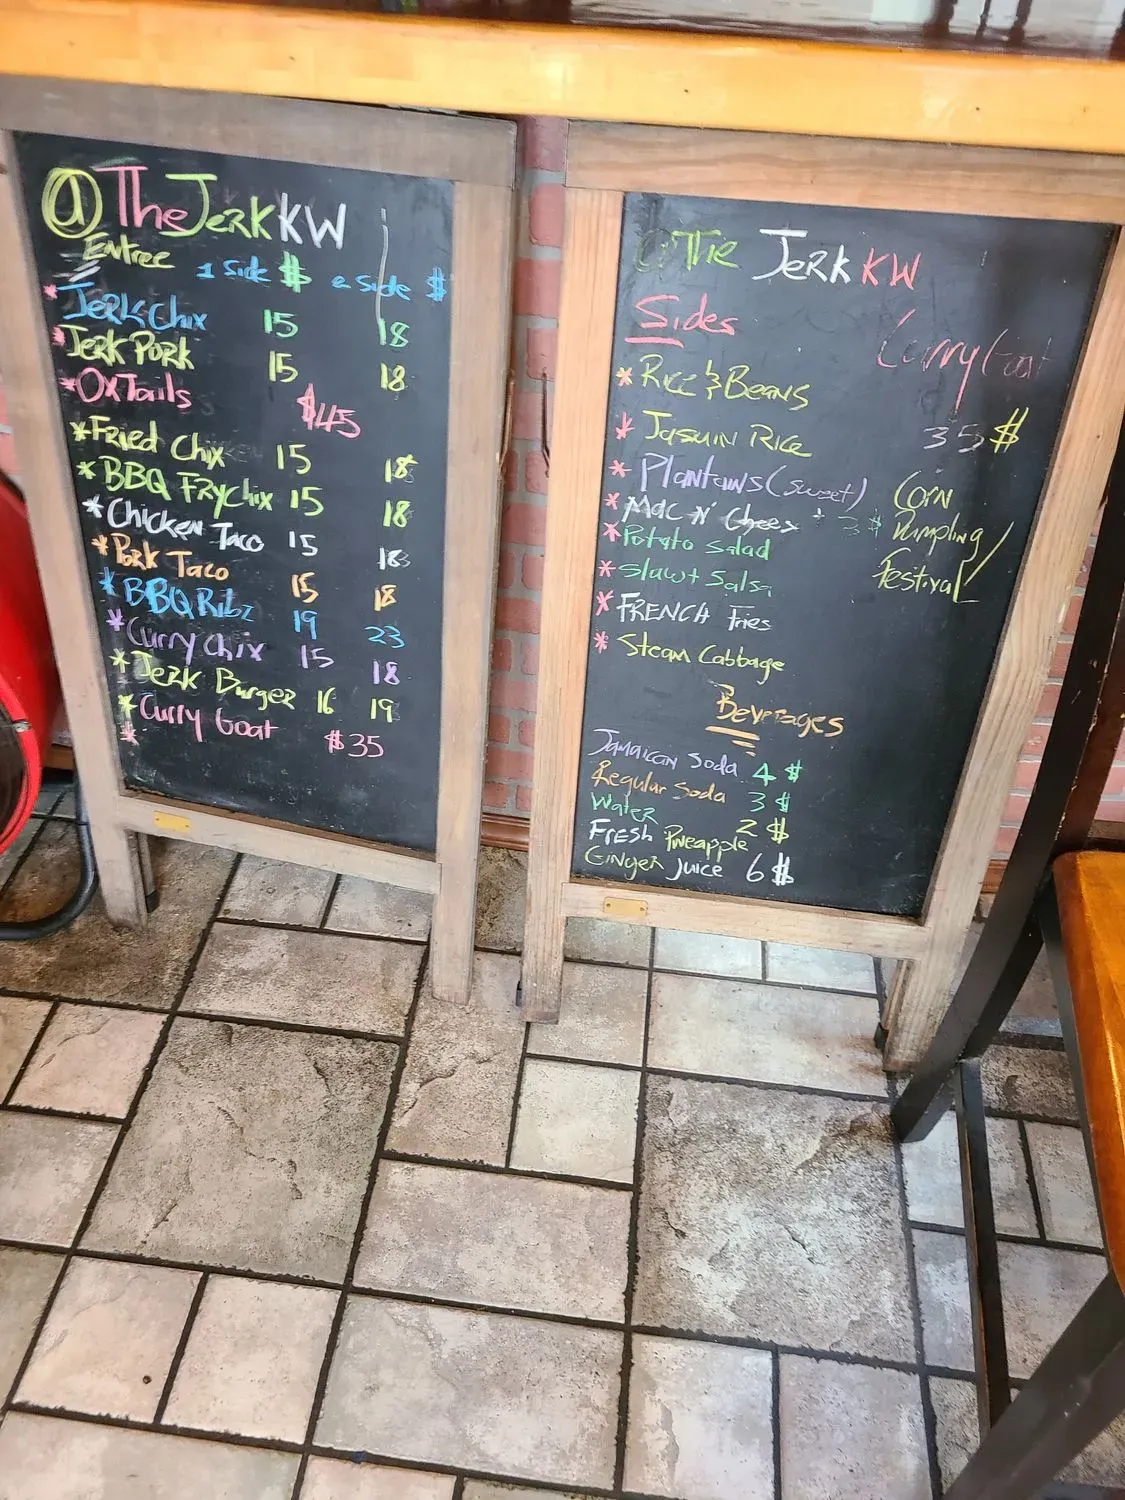 @TheJerkKW
Entree 1 Side $ 2 Side $
*Jerk Chix 15 18
*Jerk Pork 15 18
*OxTails $45
*Fried Chix 15 18
*BBQ FRychix 15 18
*Chicken Taco 15 18
*Pork Taco 15 18
*BBQ Ribz 19 23
*Curry Chix 15 18
*Jerk Burger 16 19
*Curry Goat $35
*
@The Jerk KW
Sides
Curry Goat
35$
*Rice & Beans
*Jasmin Rice
*Plantains (sweet)
*Mac N' Chees + 3$
*Potato Salad
*Slaw + Salsa
*FRENCH Fries
*Steam Cabbage
Corn
Dumpling/
festival
Beverages
Jamaican Soda 4 $
Regular Soda 3 $
Water 2 $
Fresh Pineapple
Ginger Juice 6 $